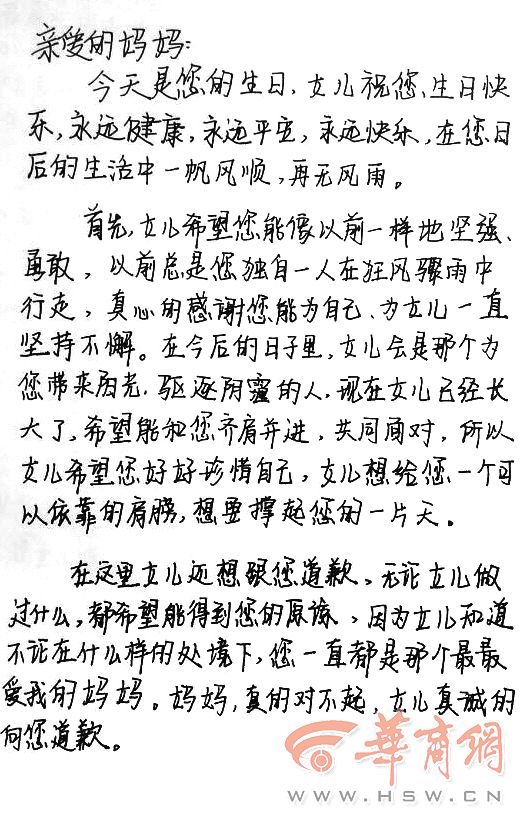 亲爱的妈妈:
今天是您的生日,女儿祝您生日快
乐,永远健康,永远平安,永远快乐,在您日
后的生活中一帆风顺,再无风雨。
首先,女儿希望您能像以前一样地坚强、
勇敢,以前总是您独自一人在狂风骤雨中
行走,真心的感谢您能为自己、为女儿一直
坚持不懈。在今后的日子里,女儿会是那个为
您带来阳光、驱逐阴霾的人,现在女儿已经长
大了,希望能和您齐肩并进,共同面对,所以
女儿希望您好好珍惜自己,女儿想给您一个可
以依靠的肩膀,想要撑起您的一片天。
在这里女儿还想跟您道歉,无论女儿做
过什么,都希望能得到您的原谅,因为女儿知道
不论在什么样的处境下,您一直都是那个最最
爱我的妈妈。妈妈,真的对不起,女儿真诚的
向您道歉。
华商网
WWW.HSW.CN